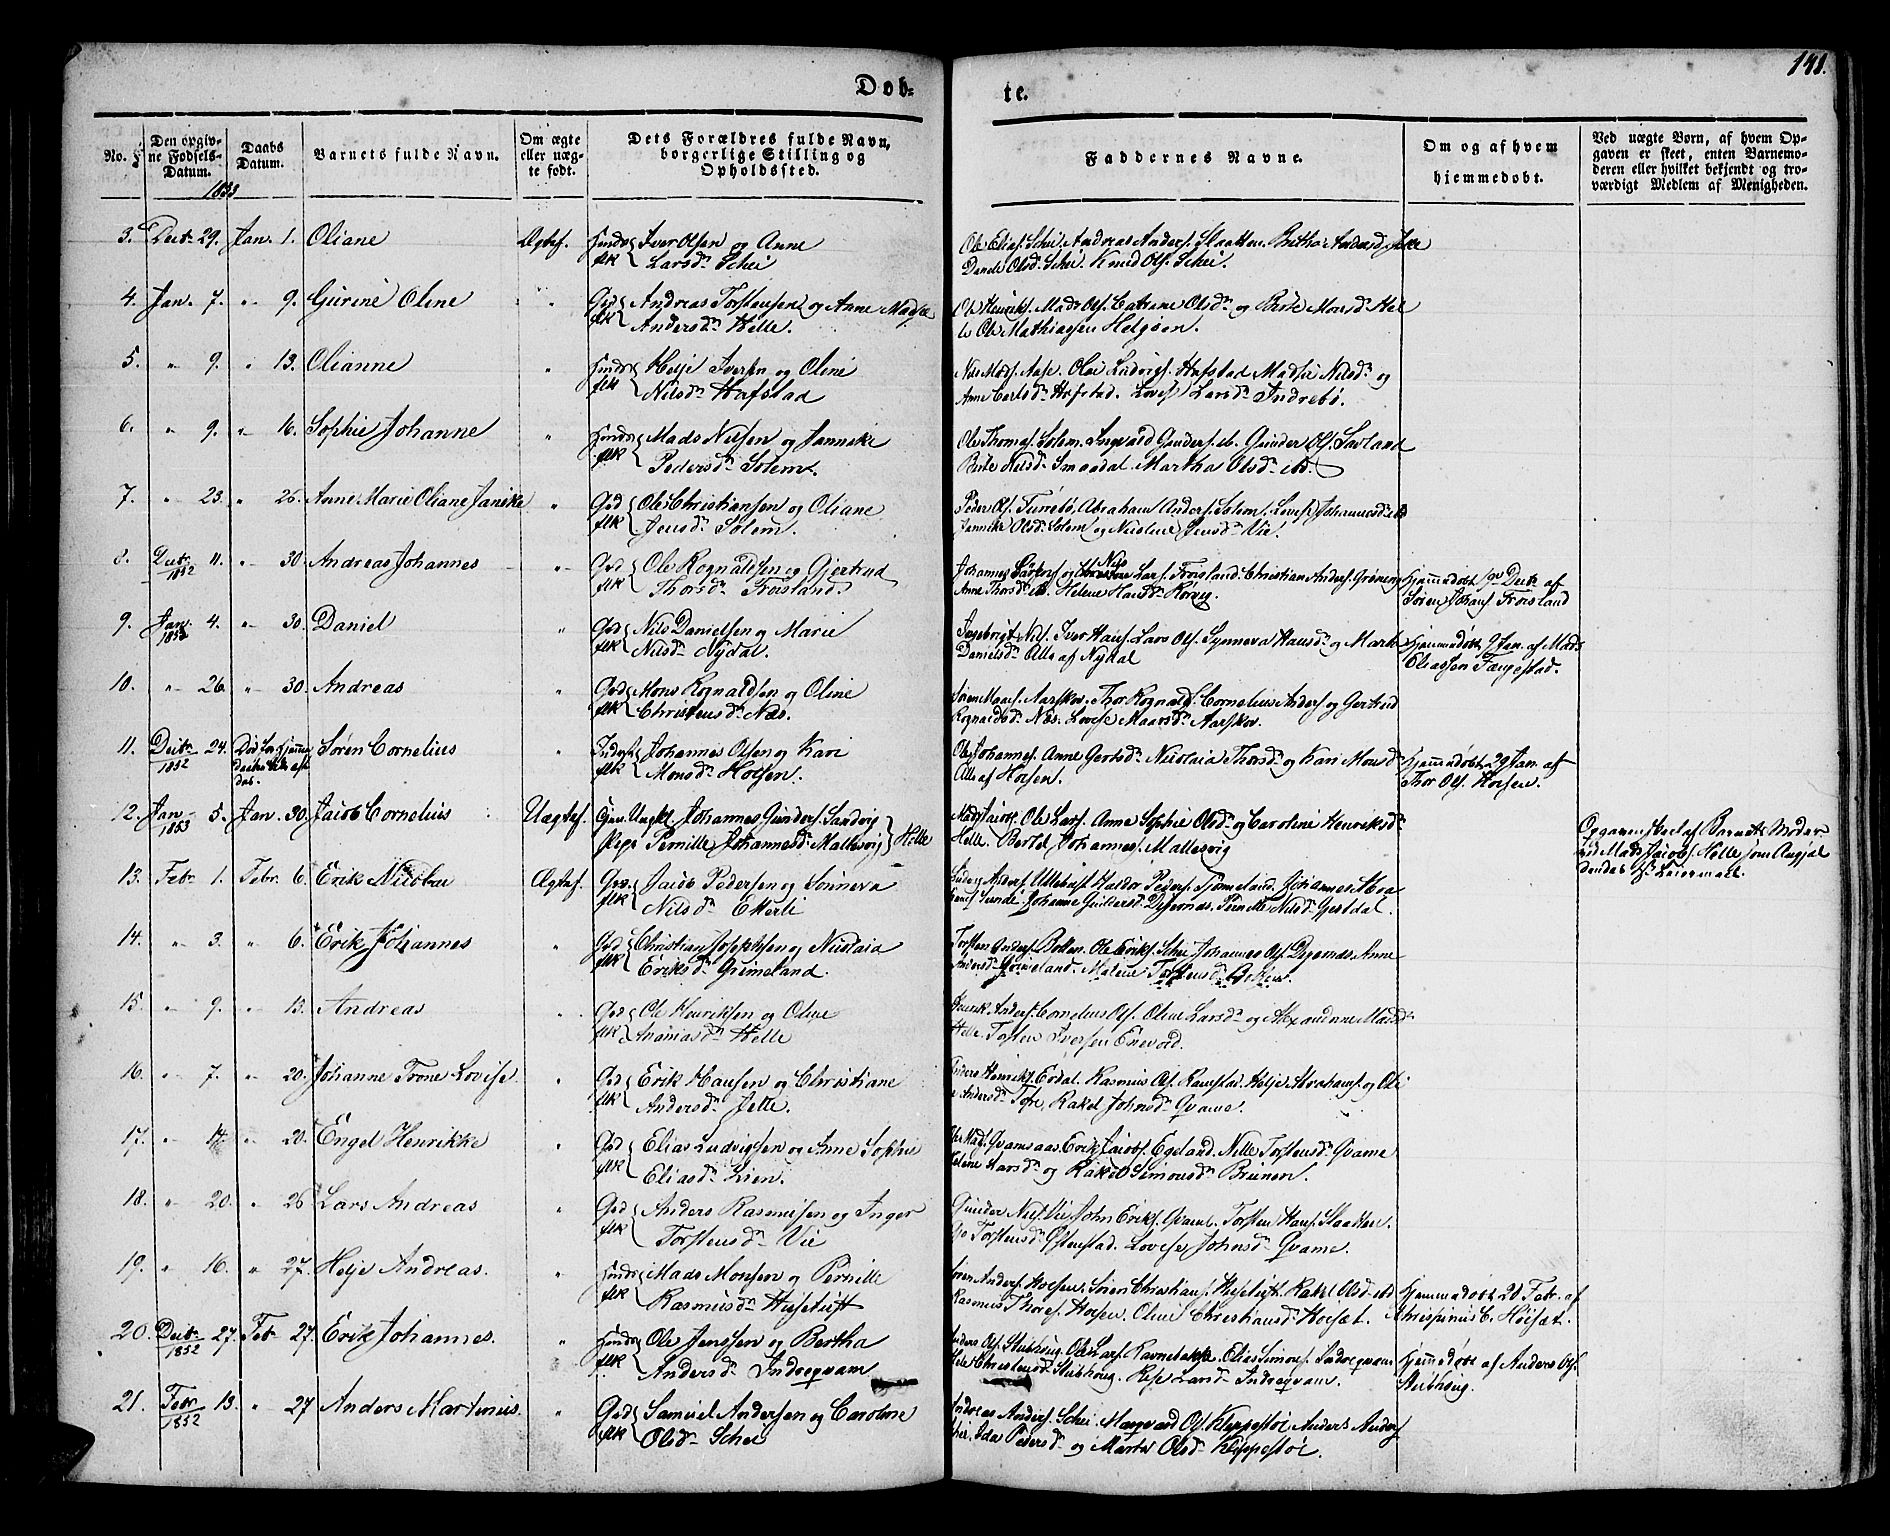 141.
Døb-
te.
No.
Den opgiv-
ne Fødsels-
Datum.
Daabs
Datum.
Barnets fulde Navn.
Om ægte
eller uæg-
te født.
Dets Forældres fulde Navn,
borgerlige Stilling og
Opholdssted.
Faddernes Navne.
Om og af hvem
hjemmedøbt.
Ved uægte Børn, af hvem Op-
gaven er skeet, enten Barnemo-
deren eller hvilket bekjendt og tro-
værdigt Medlem af Menigheden.
1853
3. Decbr 29. Jan. 1. Oliane Ægtef. Iver Olsen og Anne
Larsdr Schei
Ole Eliass. Schei. Andreas Anders. Slaatten. Bertha Andersdr Jelle
Olsdr Schei. Knud Ols. Schei.
4. Jan. 7. " 9. Gurine Oline " Gbd flk Andreas Torstensen og Anne Madse
Andersdr Helle.
Ole Henriks. Mads Ols. Catrine Olsdr og Berte Monsdr Hel
le Ole Mathiassen Helgøen.
5. " 9. " 13. Olianne " Helje Iversen og Oline
Nilsdr Hafstad
Nils Mads. Aase. Ole Ludvigs. Hafstad Madsie Nilsdr og
Anne Carlsdr Hafstad. Lovise Larsdr Indrebø.
6. " 9. " 16. Sophie Johanne " Mads Nilsen og Jannike
Pedersdr Solem.
Ole Thomas. Solem. Ingvald Gunders. ib. Gunder Ols. Savland
Berte Nilsdr Smaadal. Martha Olsdr ibd.
7. " 23. " 26. Anne Marie Oliane Janike " Gbd flk Ole Christiansen og Oliane
Jensdr Solem.
Peder Ols. Turrebø, Abraham Anders. Solem. Lovise Johannesdr ibd
Jannike Olsdr Solem og Nicoline Jensdr Vie.
8. Decbr 1852 11. " 30. Andreas Johannes " Gbd flk Ole Rognaldsen og Gjertrud
Thorsdr Froisland.
Johannes og Nils Lars. Froisland. Christian Anders. Grøneng
Anne Thorsdr ib. Helene Hansdr Rørvig.
Hjemmedøbt Decbr af
Søren Johans. Froisland
9. Jan. 1853 4. " 30. Daniel " Gbd flk Nils Danielsen og Marie
Nilsdr Nydal.
Ingebrigt Nils. Iver Hans. Lars Ols. Synneva Hansdr og Marthe
Danielsdr Alle af Nydal
Hjemmedøbt 9 Jan. af Mads
Eliassen Fargestad.
10. " 26. " 30. Andreas " Gbd flk Mons Rognaldsen og Oline
Christensdr Næs.
Søren Maas. Aarskov. Thor Rognalds. Cornelius Anders. og Gertrud
Rognaldsdr Næs. Lovise Maarsdr Aarskov.
11. Decbr 1852 24. Søren Cornelius " flk Johannes Olsen og Kari
Monsdr Hoesen.
Ole Johannes. Anne Gertsdr Nicolaia Thorsdr og Kari Monsdr
Alle af Hoesen.
Hjemmedøbt 29 Jan. af
Thor Ols. Hoesen.
12. Jan. 1853 5. Jan. 30. Jacob Cornelius Uægtef. Ungkl Johannes Gunders. Sandvig
Pige Pernille Johannesdr Mallesvig Helle
Mads Jacobs. Ole Lars. Anne Sophie Olsdr og Caroline Henriksdr
Helle. Bertel Johannes. Mallesvig
Opgaven skeet af Barnets Moder
ved Mads Jacobs. Helle som Angjæl
dendes
13. Febr 1. Febr. 6. Erik Nicolai Ægtef. Gbd flk Jacob Pedersen og Sønneva
Nilsdr Ekerli
Anders Anders. Haldor Peders. Fjømeland. Johannes
Sunde. Johanne Degernæs. Pernille Nilsdr Gjestdal.
14. " 3. " 6. Erik Johannes " Gbd flk Christian Josephsen og Nicolaia
Eriksdr Grimeland.
Torsten Anders. Botten. Ole Eriks. Schei Johannes Ols. Degernæs. Anne
Andersdr Grimeland. Malene Torstensdr Botten.
15. " 9. " 13. Andreas " Gbd flk Ole Henriksen og Oline
Ananiasdr Helle
Henrik Anders. Cornelius Ols. Oline Larsdr og Alexandrine Madsdr
Helle. Torsten Iversen Enevold.
16. " 7. " 20. Johanne Trone Lovise " Gbd flk Erik Hansen og Christiane
Andersdr Jelle.
Anders Henriks. Erdal. Rasmus Ols. Ramstad. Helje Abrahams. og Oli
ne Andersdr Tefre. Rakel Johnsdr Qvame.
17. " 14 " 20. Engel Henrikke " Gbd flk Elias Ludvigsen og Anne Sophie
Eliasdr Lien.
Ole Mads. Qvamsaas. Erik Jacobs. Egeland. Nille Torstensdr Qvame
Helene Larsdr og Rakel Simonsdr Brunen.
18. " 20. " 26 Lars Andreas " Gbd flk Anders Rasmussen og Inger
Torstensdr Vie
Gunder Nils. Vie John Eriks. Qvame. Torsten Hans. Slaatten.
Torstensdr Østenstad. Lovise Johnsdr Qvame.
19. " 16. " 27. Helje Andreas. " Mads Monsen og Pernille
Rasmusdr Hesetuft
Søren Anders. Hoesen. Søren Christians. Hesetuft. Rakel Olsdr ibd
Rasmus Thores. Hoesen. Oline Christiansdr Hoisæt.
Hjemmedøbt 20 Febr. af
Chrispinus C. Hoisæt.
20. Decbr 1852 27. Febr 27. Erik Johannes. " Ole Jenssen og Bertha
Andersdr Indreqvam
Anders Ols. Stubhoug. Ole Lars. Ravnebakk. Elias Simons. Indreqvam
Christensdr Stubhoug. Larsdr Indreqvam.
Hjemmedøbt af Anders Ols.
Stubhoug.
21. Febr 1852 13. " 27 Anders Martinus. " Gbd flk Samuel Andersen og Caroline
Olsdr Schei
Andreas Anders. Schei. Margvard Ols. Klippestøe Anders Anders.
Schei. Ida Pedersdr og Marte Olsdr Klippestøe.